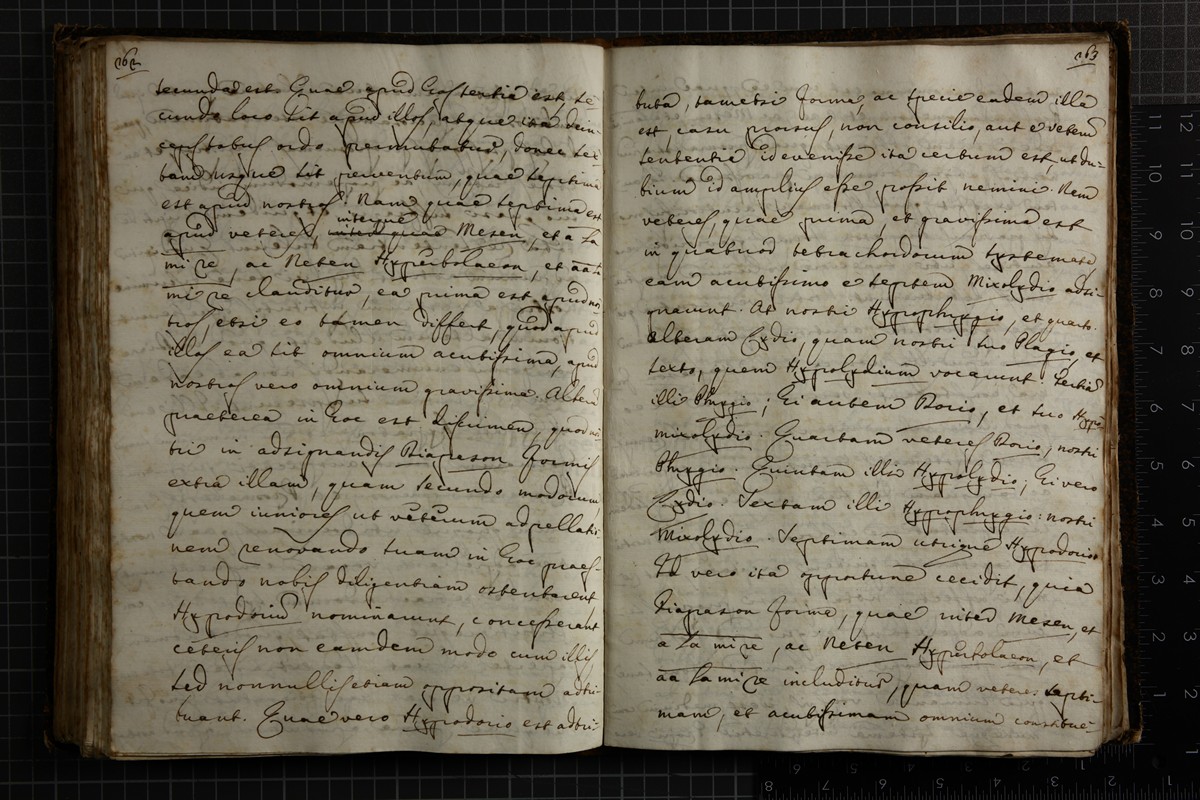 262
secunda est. Quae apud hos tertia est, se-
cundo loco sit apud illos, atque ita dein-
ceps totus ordo permutatus, donec sex
tam usque sit perventum, quae septima
est apud nostros. Nam quae septima est
apud veteres, interque Mesen, et a la
mi re, ac Neten Hyperbolaeon, et aa la
mi re clauditur, ea prima est apud nos
tros, etsi eo tamen differt, quod apud
illos ea sit omnium acutissima, apud
nostros vero omnium gravissima. Altera
praeterea in hoc est discrimen, quod nos
tri in adsignandis Diapason formis
extra illam, quam secundo modorum
quem iuniores ut veterum adpellatio
nem renovando suam in hoc praes-
tando nobis diligentiam ostentarent,
Hypodorium nominarunt, concesserant
ceteris non eamdem modo cum illis,
sed nonnullis etiam oppositam adtri-
buant. Quae vero Hypodorio est adtri-
263
buta, tametsi forma, ac specie eadem illa
est, casu prorsus, non consilio, aut e veterum
sententia id evenisse ita certum est, ut du-
bium id amplius esse possit nemini. Nam
veteres, quae prima, et gravissima est
in quatuor tetrachordorum systemate,
eam acutissimo e septem Mixolydio adsi-
gnarunt. At nostri Hypophrygio, et quarto.
Alteram Lydio, quam nostri suo Plagio, et
sexto, quem Hypolydium vocarunt. Tertiam
illi Phrygio; Hi autem Dorio, et suo Hyper
mixolydio. Quartam veteres Dorio, nostri
Phrygio. Quintam illi Hypolydio; Hi vero
Lydio. Sextam illi Hypophrygio: nostri
Mixolydio. Septimam utrique Hypodorio
Id vero ita opportune cecidit, quia
Diapason forma, quae inter Mesen, et
a la mi re, ac Neten Hyperbolaeon, et
aa la mi re includitur, quam veteres septi-
mam, et acutissimam omnium constitue-